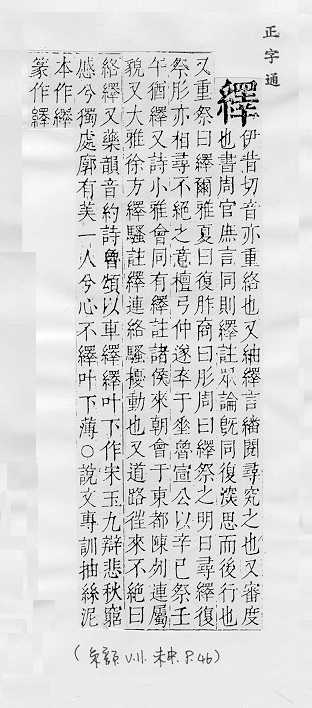 正字通
繹伊昔切音亦重絡也又紬繹言繙閱尋究之也又審度
也書周官庶言同則繹註眾論旣同復深思而後行也
又重祭曰繹爾雅夏曰復胙商曰肜周曰繹祭之明日尋繹復
祭肜亦相尋不絕之意檀弓仲遂卒于垂魯宣公以辛巳祭壬
午猶繹又詩小雅會同有繹註諸侯來朝會于東都陳列連屬
貌又大雅徐方繹騷註繹連絡騷擾動也又道路徃來不絕曰
絡繹又藥韻音約詩魯頌以車繹繹叶下作宋玉九辯悲秋窮
慼兮獨處廓有美一人兮心不繹叶下薄○說文專訓抽絲泥
本作繹
篆作繹
(釆額 V.11. 未申. P.46)